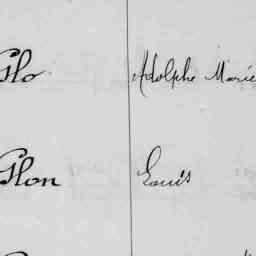 Glo Adolphe Marie
Glon Louis